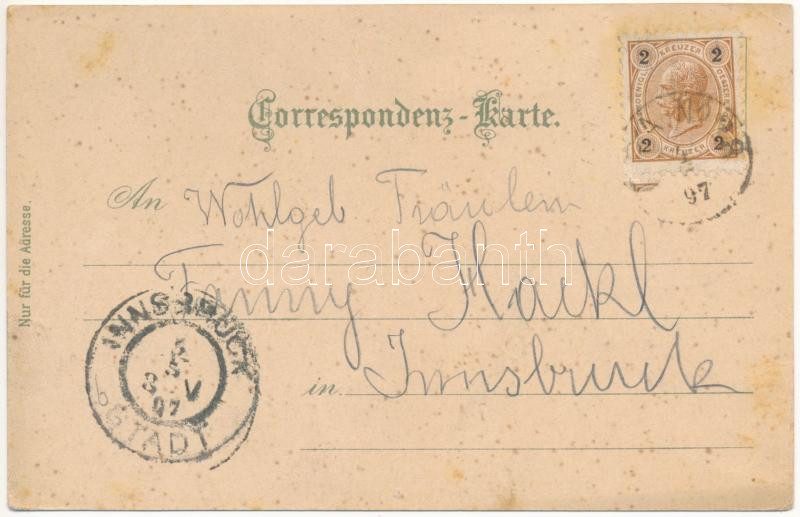 Correspondenz-Karte.
2 KREUZER 2
2 KREUZER 2
97
An Wohlgeb Fräulein
Fanny Hackl
in Innsbruck
Nur für die Adresse.
INNSBRUCK
3 V
97
STADT
darabanth